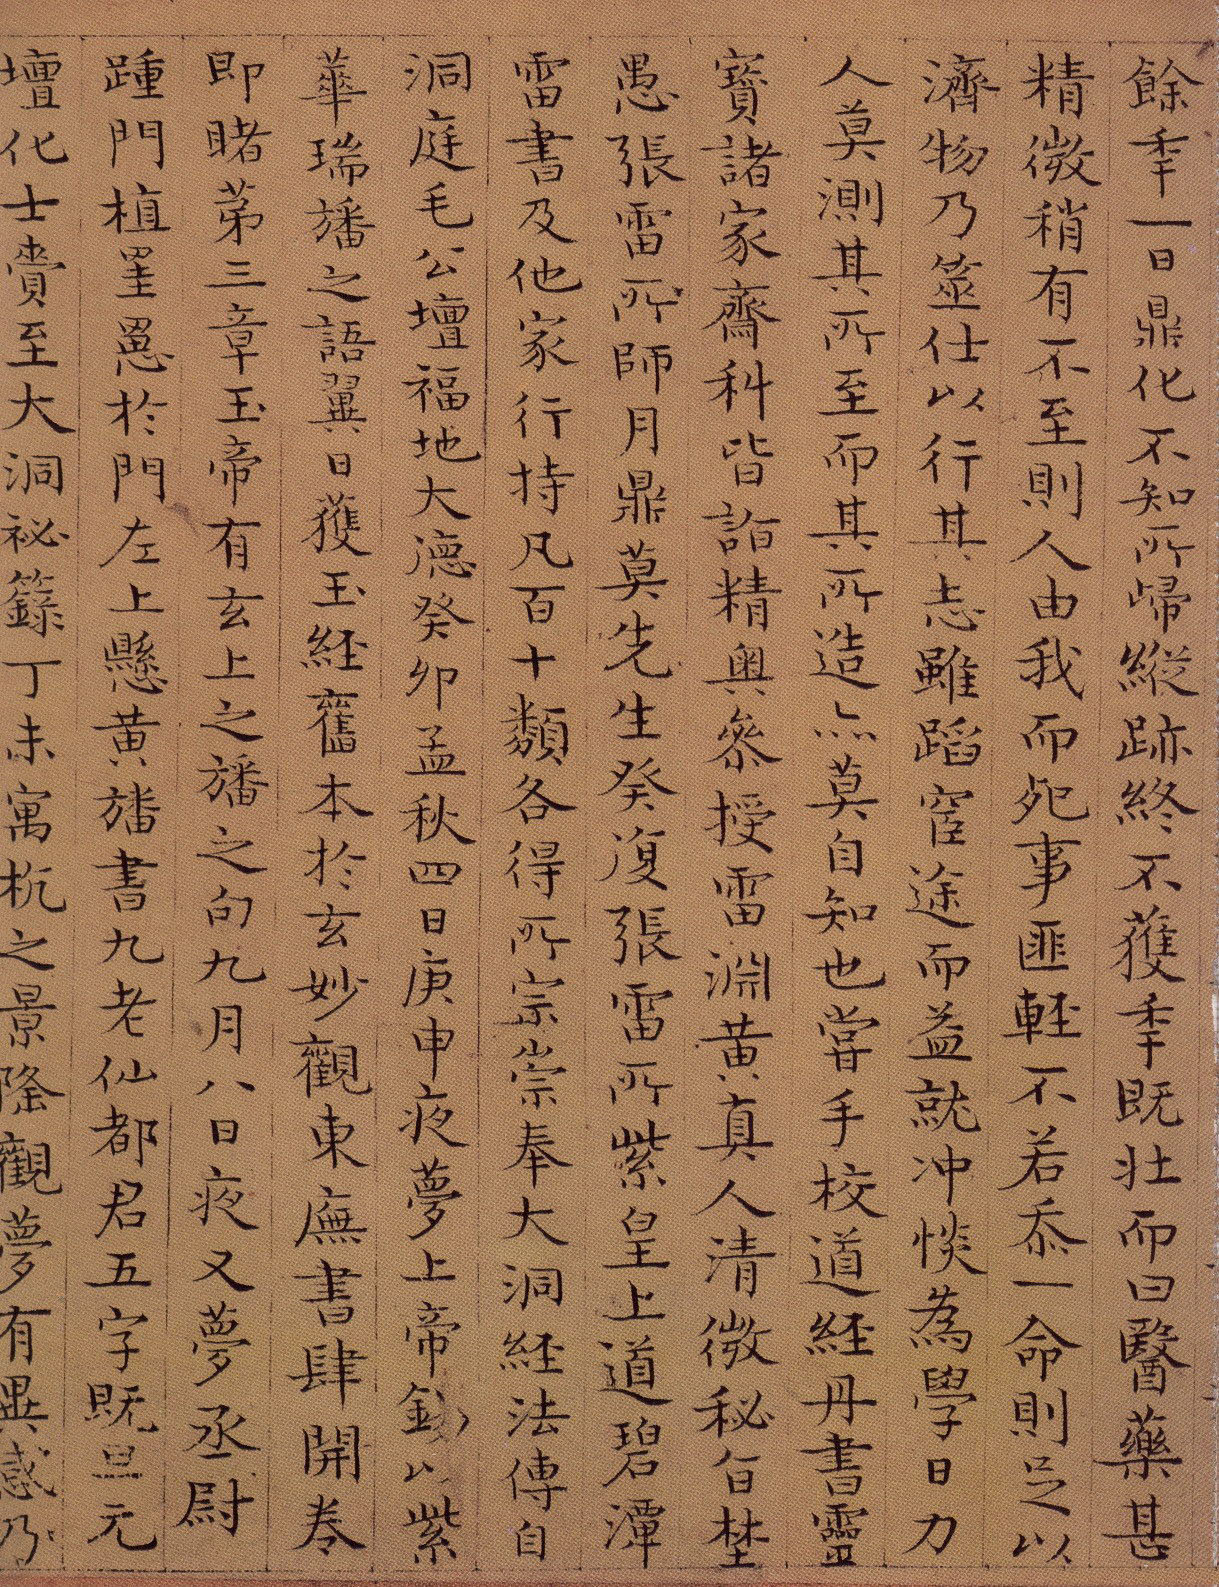 餘秊一日鼎化不知所歸縱跡終不獲秊既壯而曰醫藥甚
精微稍有不至則人由我而死事匪輕不若忝一命則足以
濟物乃筮仕以行其志雖蹈宦途而益就冲惔為學日力
人莫測其所至而其所造亦莫自知也嘗手校道經丹書靈
寶諸家齋科皆詣精奧叅授雷淵黄真人清微秘旨埜
愚張雷所師月鼎莫先生癸復張雷所紫皇上道碧潭
雷書及他家行持凡百十類各得所宗崇奉大洞經法傳自
洞庭毛公壇福地大德癸卯孟秋四日庚申夜夢上帝錫以紫
華瑞旛之語翼日獲玉經舊本於玄妙觀東廡書肆開卷
即睹苐三章玉帝有玄上之旛之句九月八日夜又夢丞尉
踵門植罣罳於門左上懸黄旛書九老仙都君五字既旦元
壇化士賫至大洞祕籙丁未寓杭之景隆觀夢有異感乃